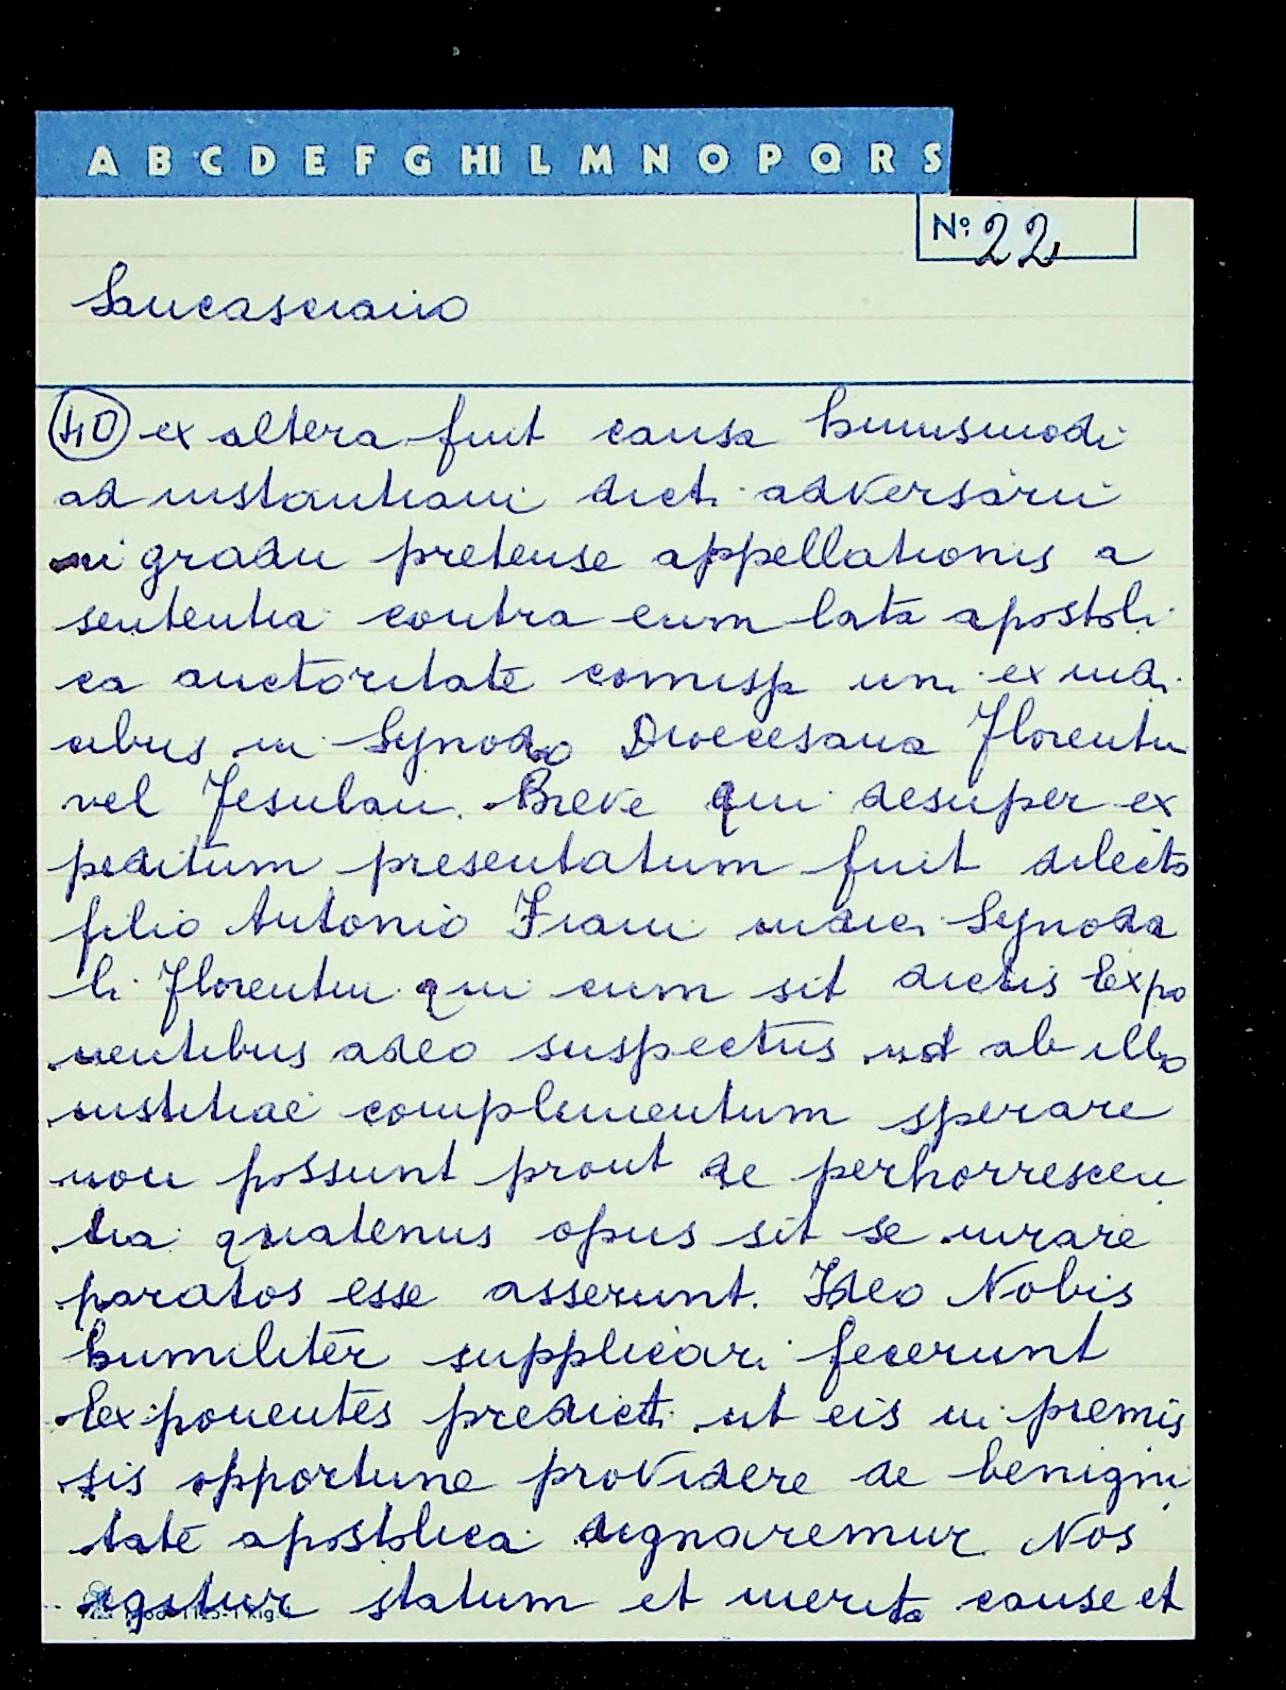 A B C D E F G HI L M N O P Q R S
No: 22
Sancasciano
40 ex altera fuit causa huiusmodi
ad instantiam dicti adversarii
in gradu pretense appellationis a
sententia contra eum lata apostoli
ca auctoritate comissa uni ex iudi
cibus in Synodo Dioecesana Florentin
vel Fesulan. Breve qui desuper ex
peditum presentatum fuit dilecto
filio Antonio Frani iudici Synoda
li Florentin qui cum sit dictis Expo
nentibus adeo suspectus ut ab illo
iustitiae complementum sperare
non possunt prout de perhorrescen
tia quatenus opus sit se iurare
paratos esse asserunt. Ideo Nobis
humiliter supplicari fecerunt
Exponentes predicti ut eis in premis
sis opportune providere de benigni
tate apostolica dignaremur Nos
igitur statum et merita cause et